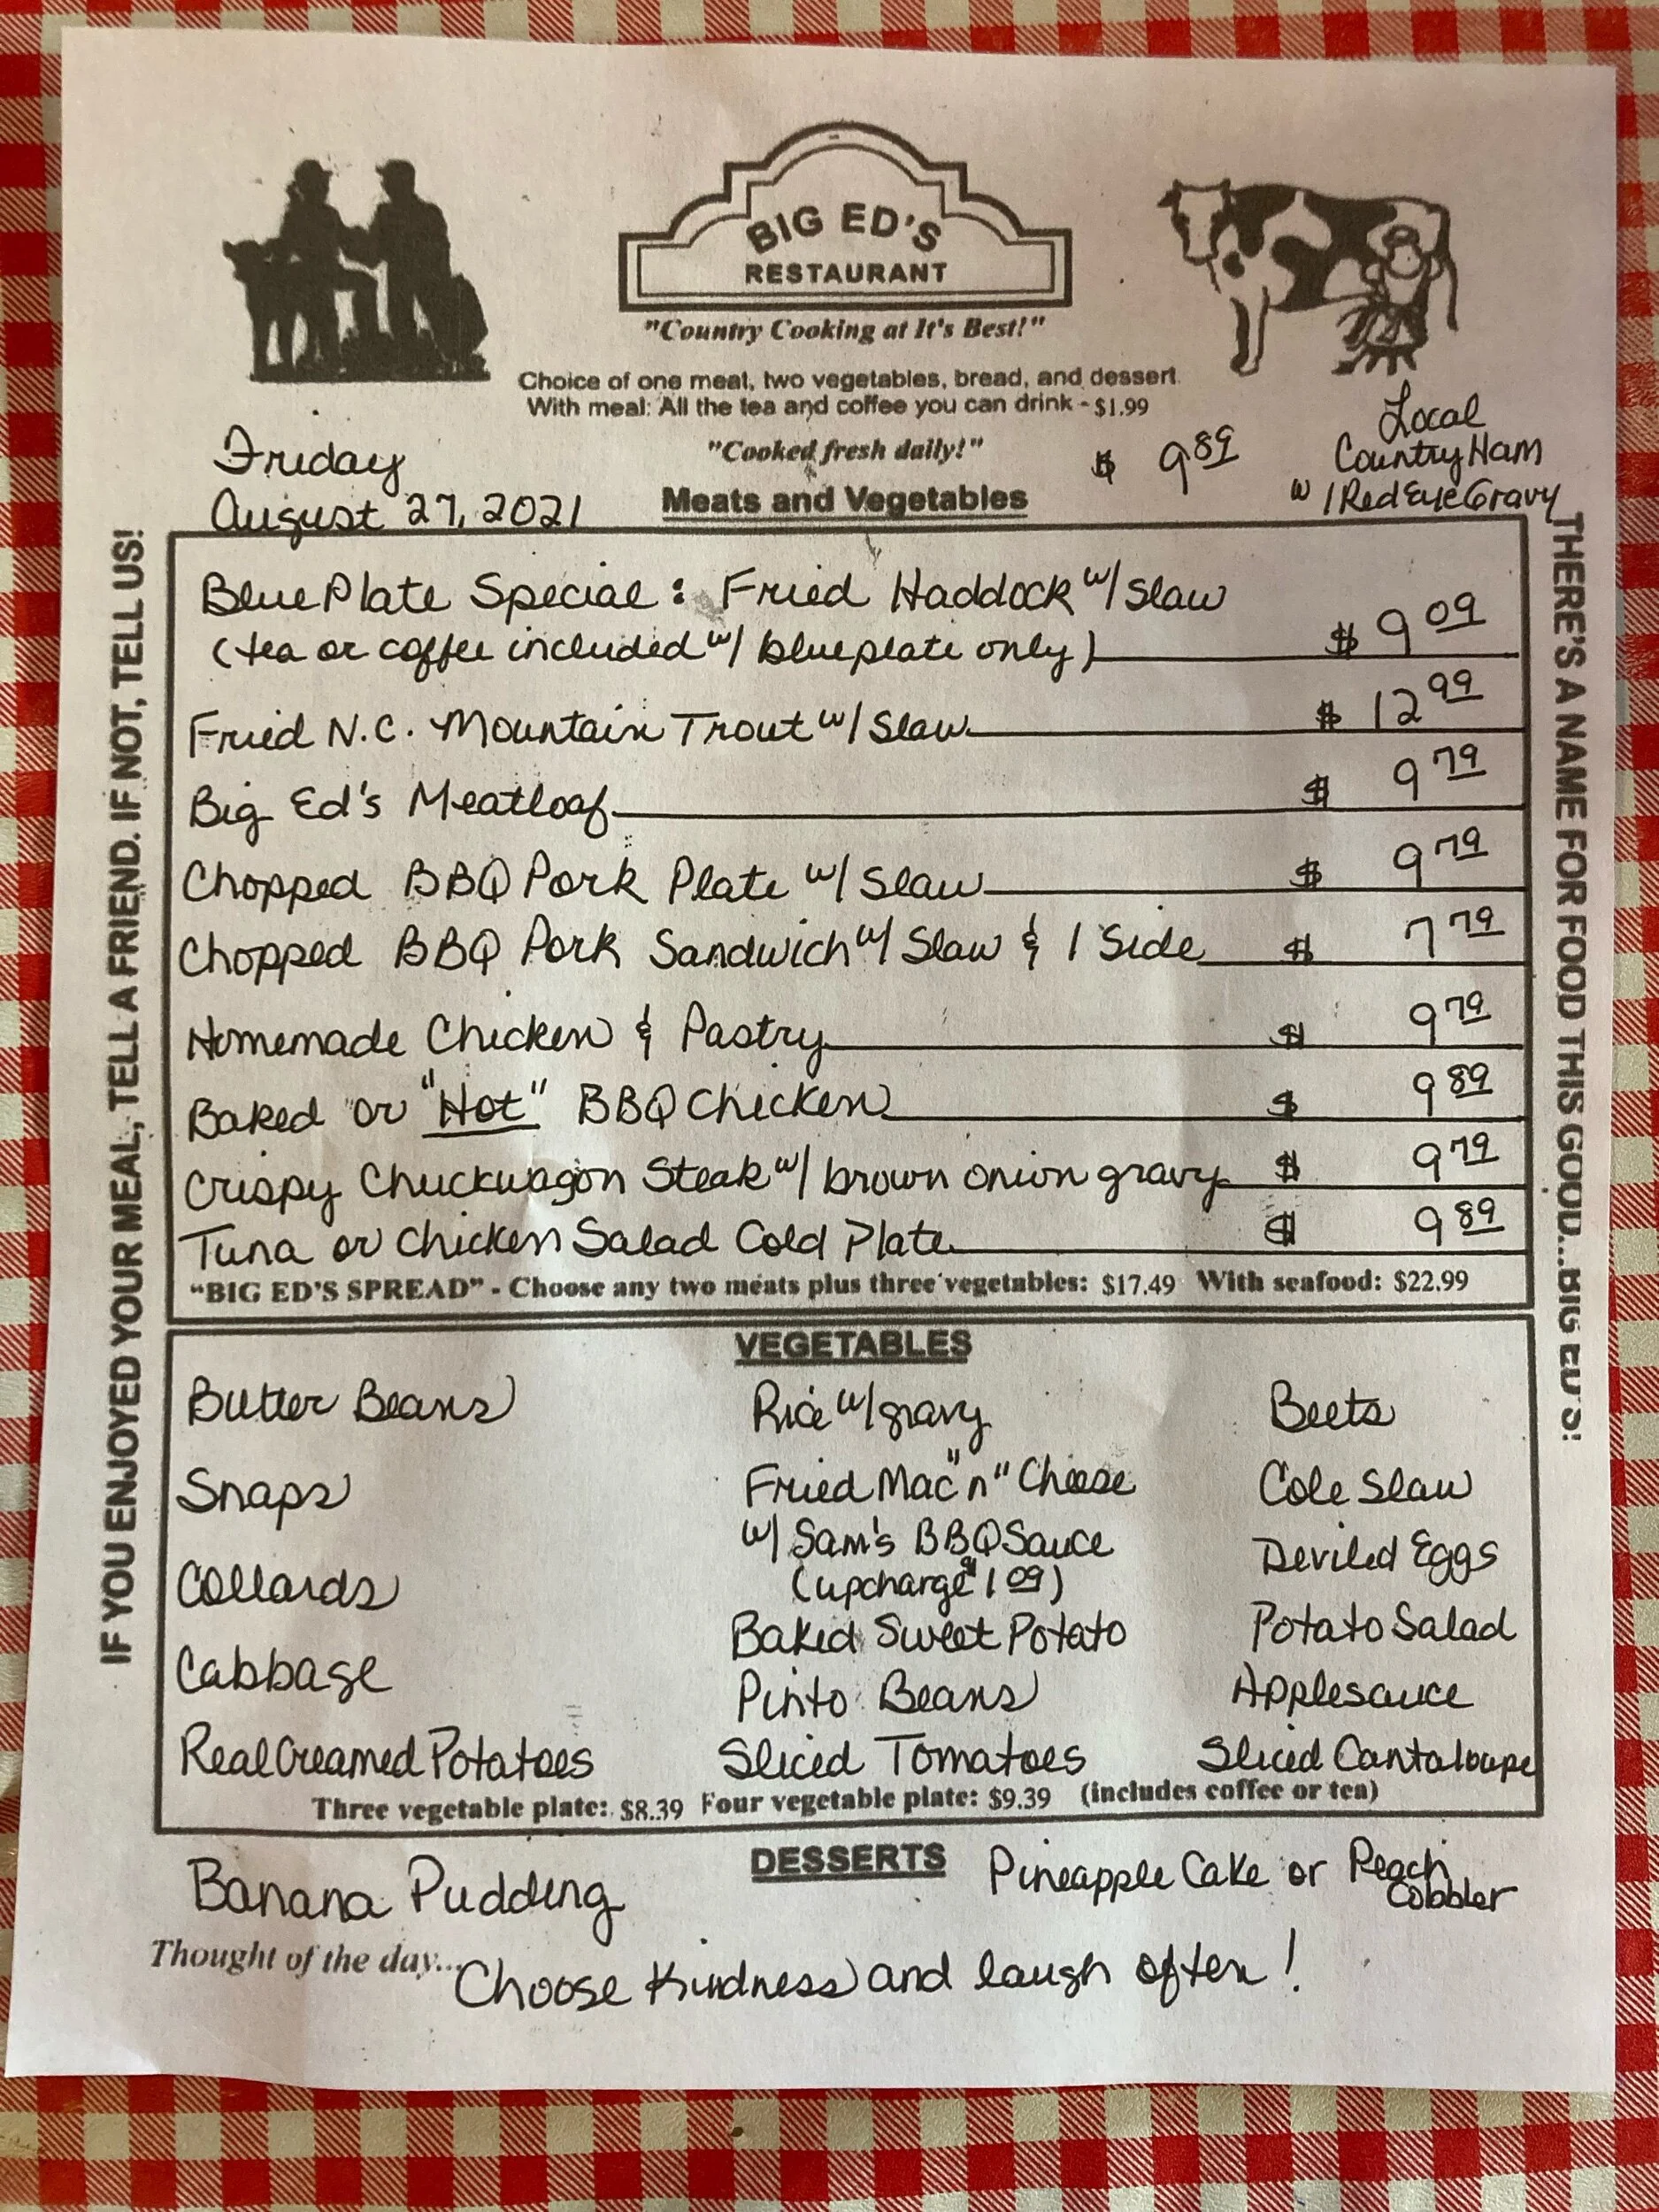 BIG ED'S
RESTAURANT
"Country Cooking at It's Best!"
Choice of one meat, two vegetables, bread, and dessert
With meal: All the tea and coffee you can drink - $1.99
"Cooked fresh daily!"
Friday
August 27, 2021
Meats and Vegetables
$ 9.89
Local
Country Ham
w/ Red Eye Gravy
IF YOU ENJOYED YOUR MEAL, TELL A FRIEND. IF NOT, TELL US!
THERE'S A NAME FOR FOOD THIS GOOD...BIG ED'S!
Blue Plate Special: Fried Haddock w/ Slaw
(tea or coffee included w/ blueplate only) $ 9 09
Fried N.C. Mountain Trout w/ Slaw $ 12 99
Big Ed's Meatloaf $ 9 79
Chopped BBQ Pork Plate w/ Slaw $ 9 79
Chopped BBQ Pork Sandwich w/ Slaw & 1 Side $ 7 79
Homemade Chicken & Pastry $ 9 79
Baked or "Hot" BBQ Chicken $ 9 89
Crispy Chuckwagon Steak w/ brown onion gravy $ 9 79
Tuna or Chicken Salad Cold Plate $ 9 89
"BIG ED'S SPREAD" - Choose any two meats plus three vegetables: $17.49 With seafood: $22.99
VEGETABLES
Butter Beans
Snaps
Collards
Cabbage
Real Creamed Potatoes
Rice w/ gravy
Fried Mac "n" Cheese
w/ Sam's BBQ Sauce
(upcharge $1 09)
Baked Sweet Potato
Pinto Beans
Sliced Tomatoes
Beets
Cole Slaw
Deviled Eggs
Potato Salad
Applesauce
Sliced Cantaloupe
Three vegetable plate: $8.39 Four vegetable plate: $9.39 (includes coffee or tea)
DESSERTS
Banana Pudding
Pineapple Cake or Peach
Cobbler
Thought of the day... Choose Kindness and laugh often!